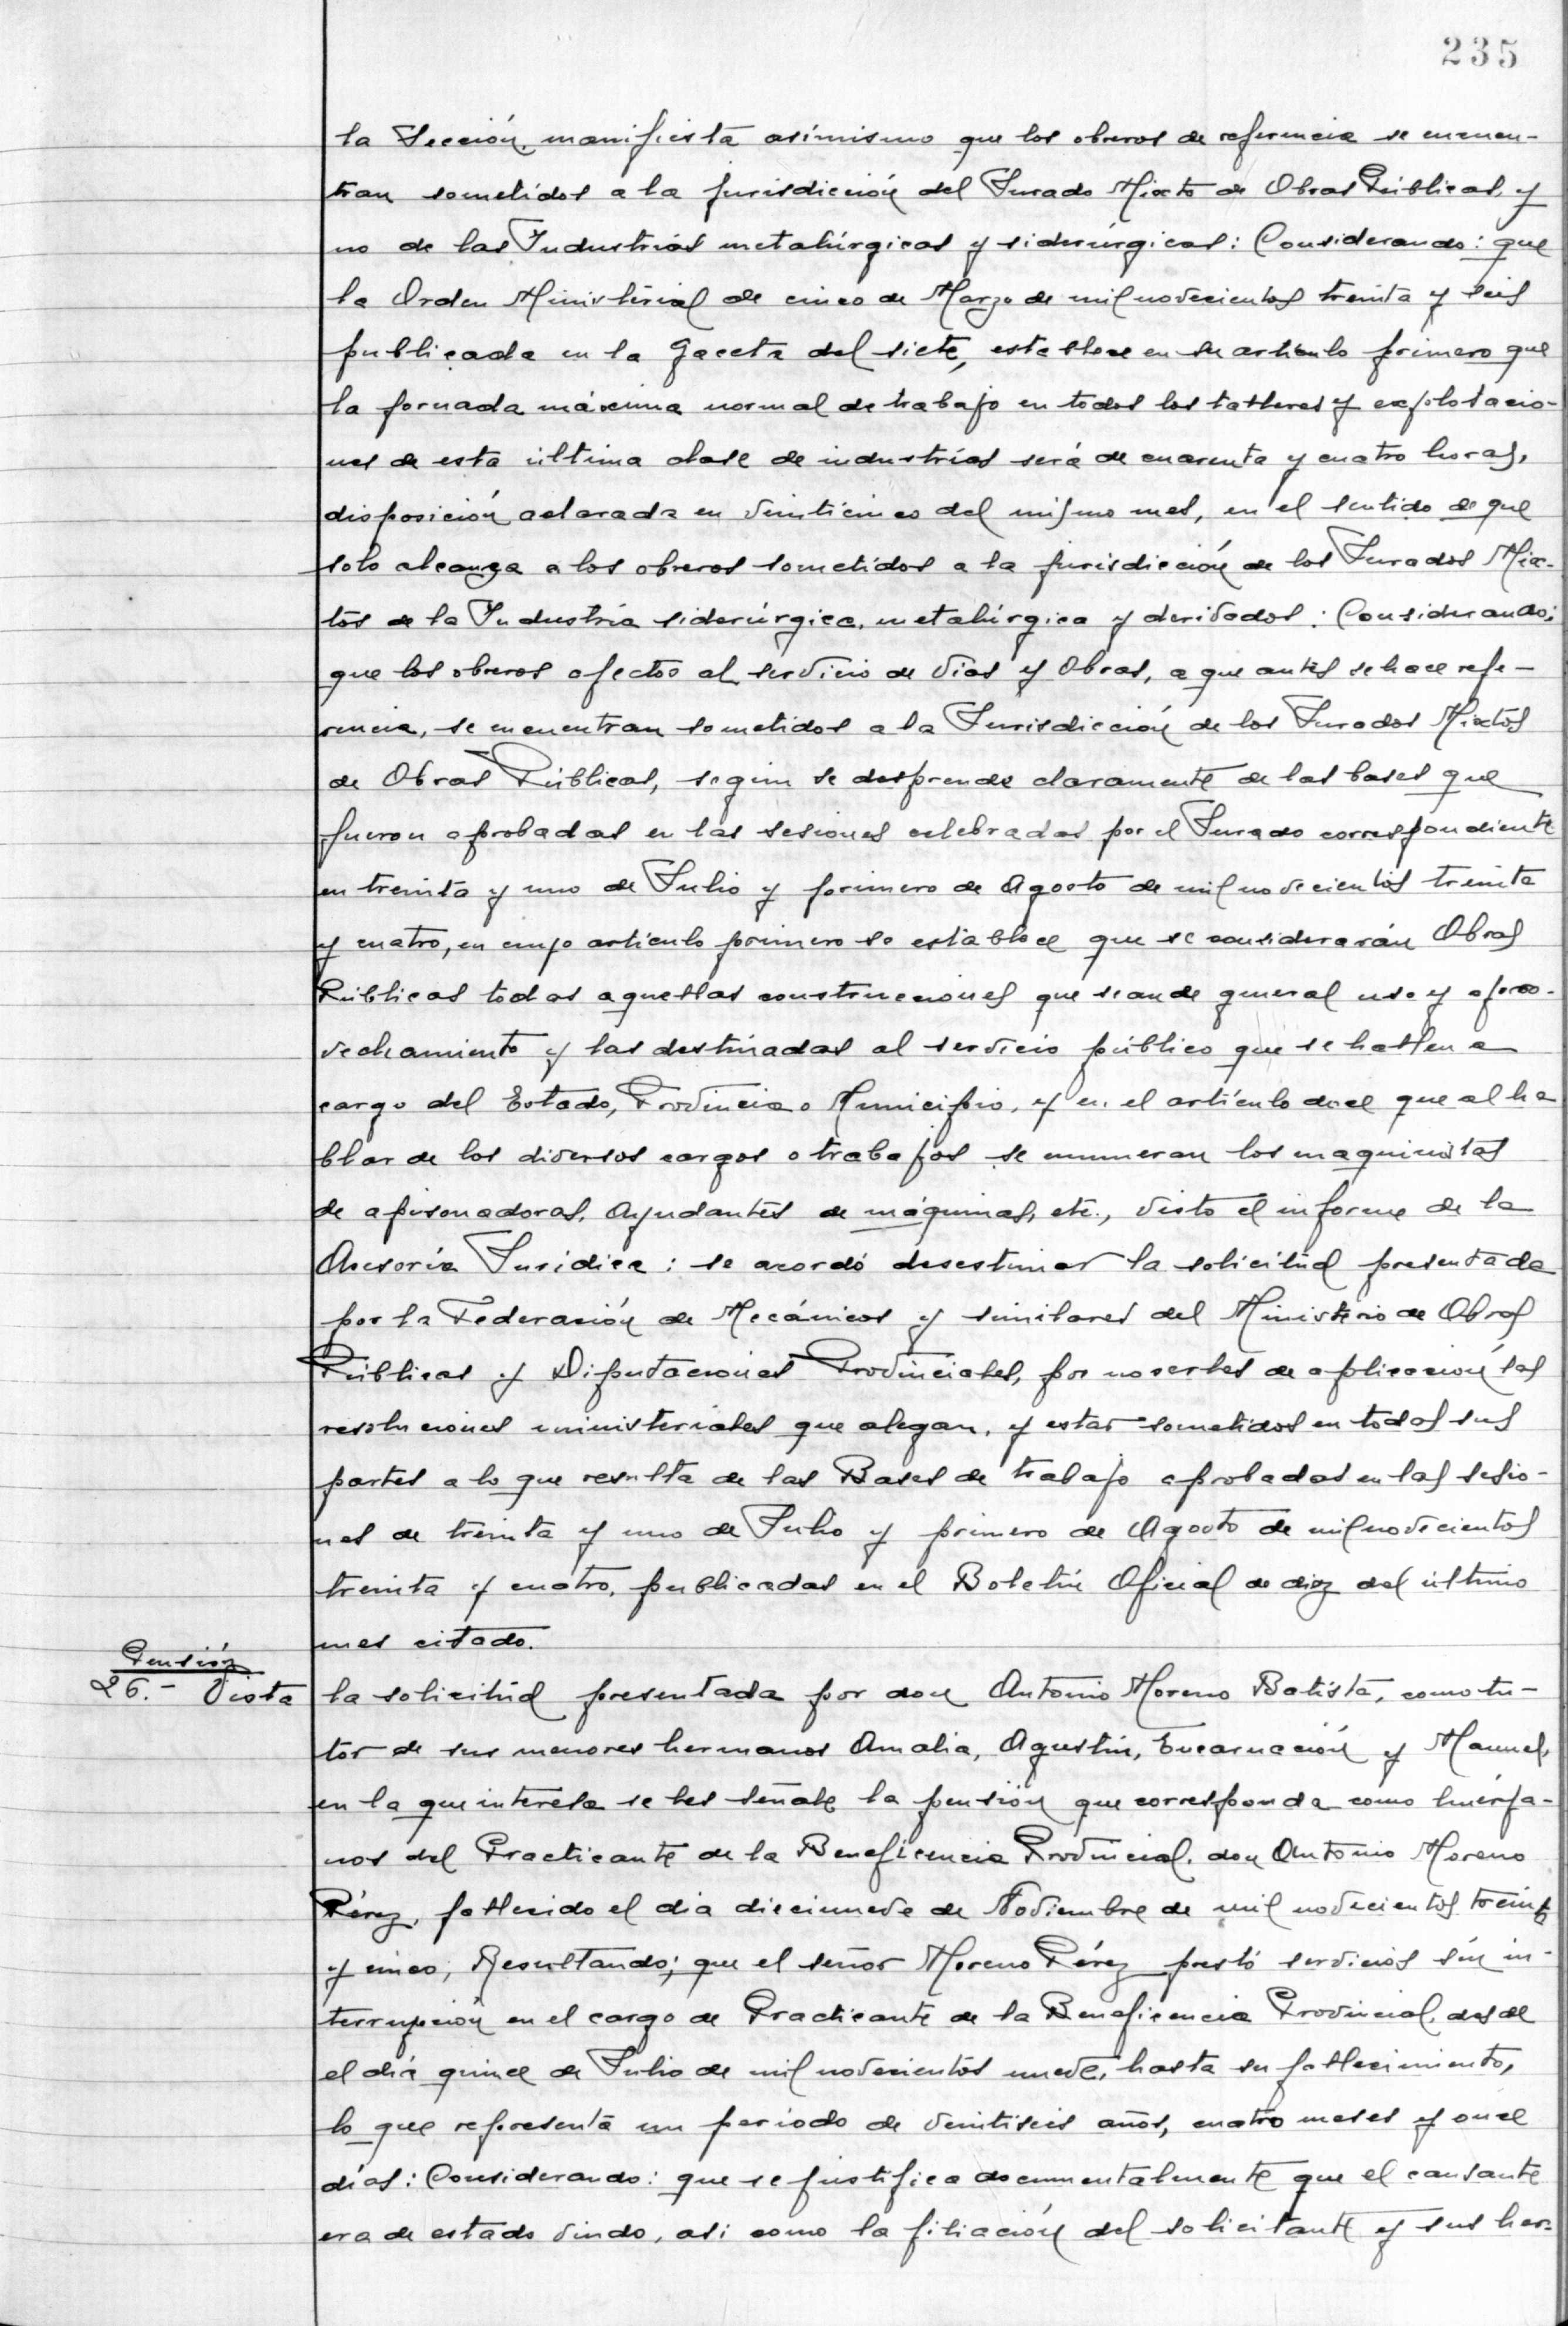 235
la Sección, manifiesta asimismo que los obreros de referencia se encuen-
tran sometidos a la jurisdicción del Jurado Mixto de Obras Públicas, y
no de las Industrias metalúrgicas y siderúrgicas: Considerando: que
la Orden Ministerial de cinco de Marzo de mil novecientos treinta y seis
publicada en la Gaceta del siete, establece en su artículo primero que
la jornada máxima normal de trabajo en todos los talleres y explotacio-
nes de esta última clase de industrias será de cuarenta y cuatro horas,
disposición aclarada en veinticinco del mismo mes, en el sentido de que
solo alcanza a los obreros sometidos a la jurisdicción de los Jurados Mix-
tos de la Industria siderúrgica, metalúrgica y derivados: Considerando:
que los obreros afectos al servicio de Vías y Obras, a que antes se hace refe-
rencia, se encuentran sometidos a la Jurisdicción de los Jurados Mixtos
de Obras Públicas, según se desprende claramente de las bases que
fueron aprobadas en las sesiones celebradas por el Jurado correspondiente
en treinta y uno de Julio y primero de Agosto de mil novecientos treinta
y cuatro, en cuyo artículo primero se establece que se considerarán Obras
Públicas todas aquellas construcciones que sean de general uso y apro-
vechamiento y las destinadas al servicio público que se hallen a
cargo del Estado, Provincia o Municipio, y en el artículo doce que al ha
blar de los diversos cargos o trabajos se enumeran los maquinistas
de apisonadoras, Ayudantes de máquinas, etc., visto el informe de la
Asesoría Jurídica: se acordó desestimar la solicitud presentada
por la Federación de Mecánicos y similares del Ministerio de Obras
Públicas y Diputaciones Provinciales, por no serles de aplicación las
resoluciones ministeriales que alegan, y estar sometidos en todas sus
partes a lo que resulta de las Bases de trabajo aprobadas en las sesio-
nes de treinta y uno de Julio y primero de Agosto de mil novecientos
treinta y cuatro, publicadas en el Boletín Oficial de diez del último
mes citado.
Pensión
26.- Vista la solicitud presentada por don Antonio Moreno Batista, como tu-
tor de sus menores hermanos Amalia, Agustín, Encarnación y Manuel,
en la que interesa se les señale la pensión que corresponda como huérfa-
nos del Practicante de la Beneficencia Provincial, don Antonio Moreno
Pérez, fallecido el día diecinueve de Noviembre de mil novecientos treinta
y cinco; Resultando; que el señor Moreno Pérez prestó servicios sin in-
terrupción en el cargo de Practicante de la Beneficencia Provincial, desde
el día quince de Julio de mil novecientos nueve, hasta su fallecimiento,
lo que representa un período de veintiseis años, cuatro meses y once
días: Considerando: que se justifica documentalmente que el causante
era de estado viudo, asi como la filiación del solicitante y sus her-